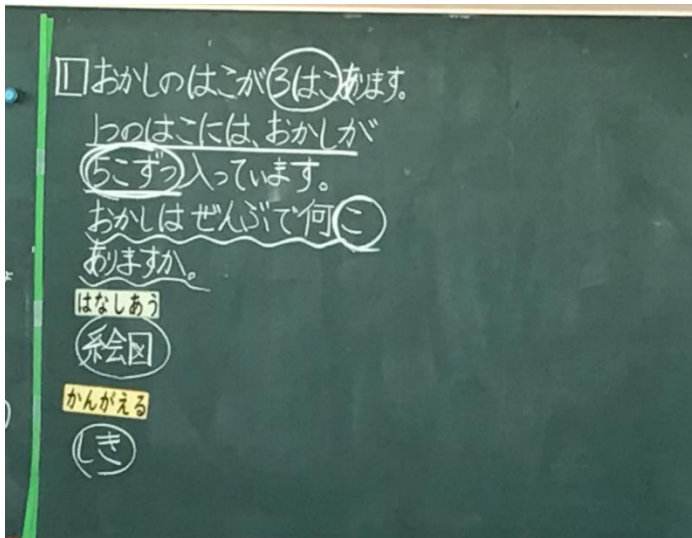 1 おかしのはこが3はこあります。
1つのはこには、おかしが
5こずつ入っています。
おかしはぜんぶで何こ
ありますか。
はなしあう
絵図
かんがえる
しき